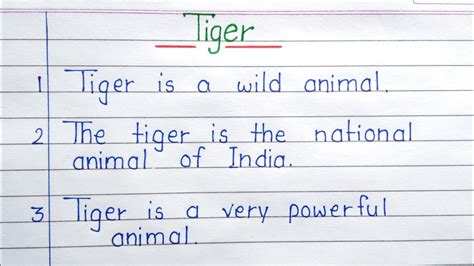 Tiger
1 Tiger is a wild animal.
2 The tiger is the national
animal of India.
3 Tiger is a very powerful
animal.